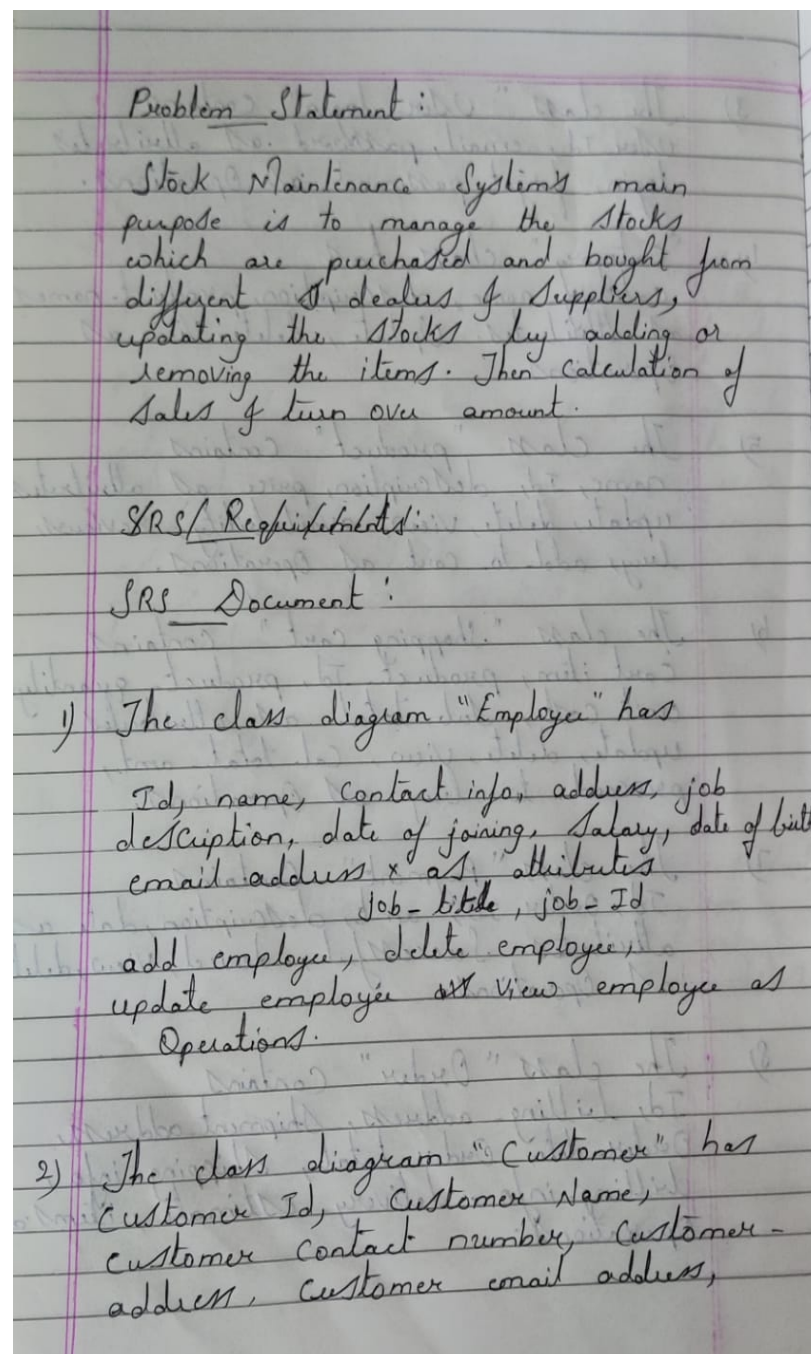 Problem Statement :
Stock Maintenance System's main
purpose is to manage the stocks
which are purchased and bought from
different dealers & suppliers,
updating the stocks by adding or
removing the items. Then calculation of
sales & turn over amount.
SRS/ Requirements:
SRS Document :
1) The class diagram "Employee" has
Id, name, contact info, address, job
description, date of joining, salary, date of birth
email address x as attributes
job-title, job-Id
add employee, delete employee,
update employee view employee as
Operations.
2) The class diagram "Customer" has
Customer Id, Customer Name,
customer contact number, Customer-
address, customer email address,